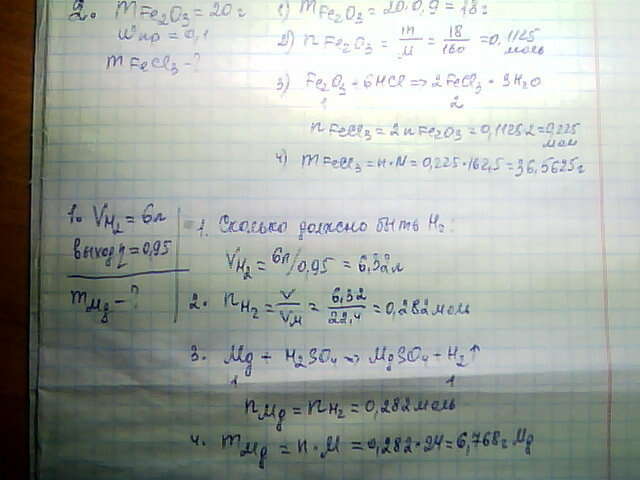 2. mFe₂O₃ = 20г
wпр = 0,1
mFeCl₃ - ?
1) mFe₂O₃ = 20·0,9 = 18г
2) nFe₂O₃ = m/M = 18/160 = 0,1125 моль
3) Fe₂O₃ + 6HCl => 2FeCl₃ + 3H₂O
1 2
nFeCl₃ = 2nFe₂O₃ = 0,1125·2 = 0,225 мол
4) mFeCl₃ = n·M = 0,225·162,5 = 36,5625г
1. VH₂ = 6л
выход η = 0,95
mMg - ?
1. Сколько должно быть H₂:
VH₂ = 6л/0,95 = 6,32л
2. nH₂ = V/VM = 6,32/22,4 = 0,282 моль
3. Mg + H₂SO₄ => MgSO₄ + H₂↑
1 1
nMg = nH₂ = 0,282 моль
4. mMg = n·M = 0,282·24 = 6,768г Mg